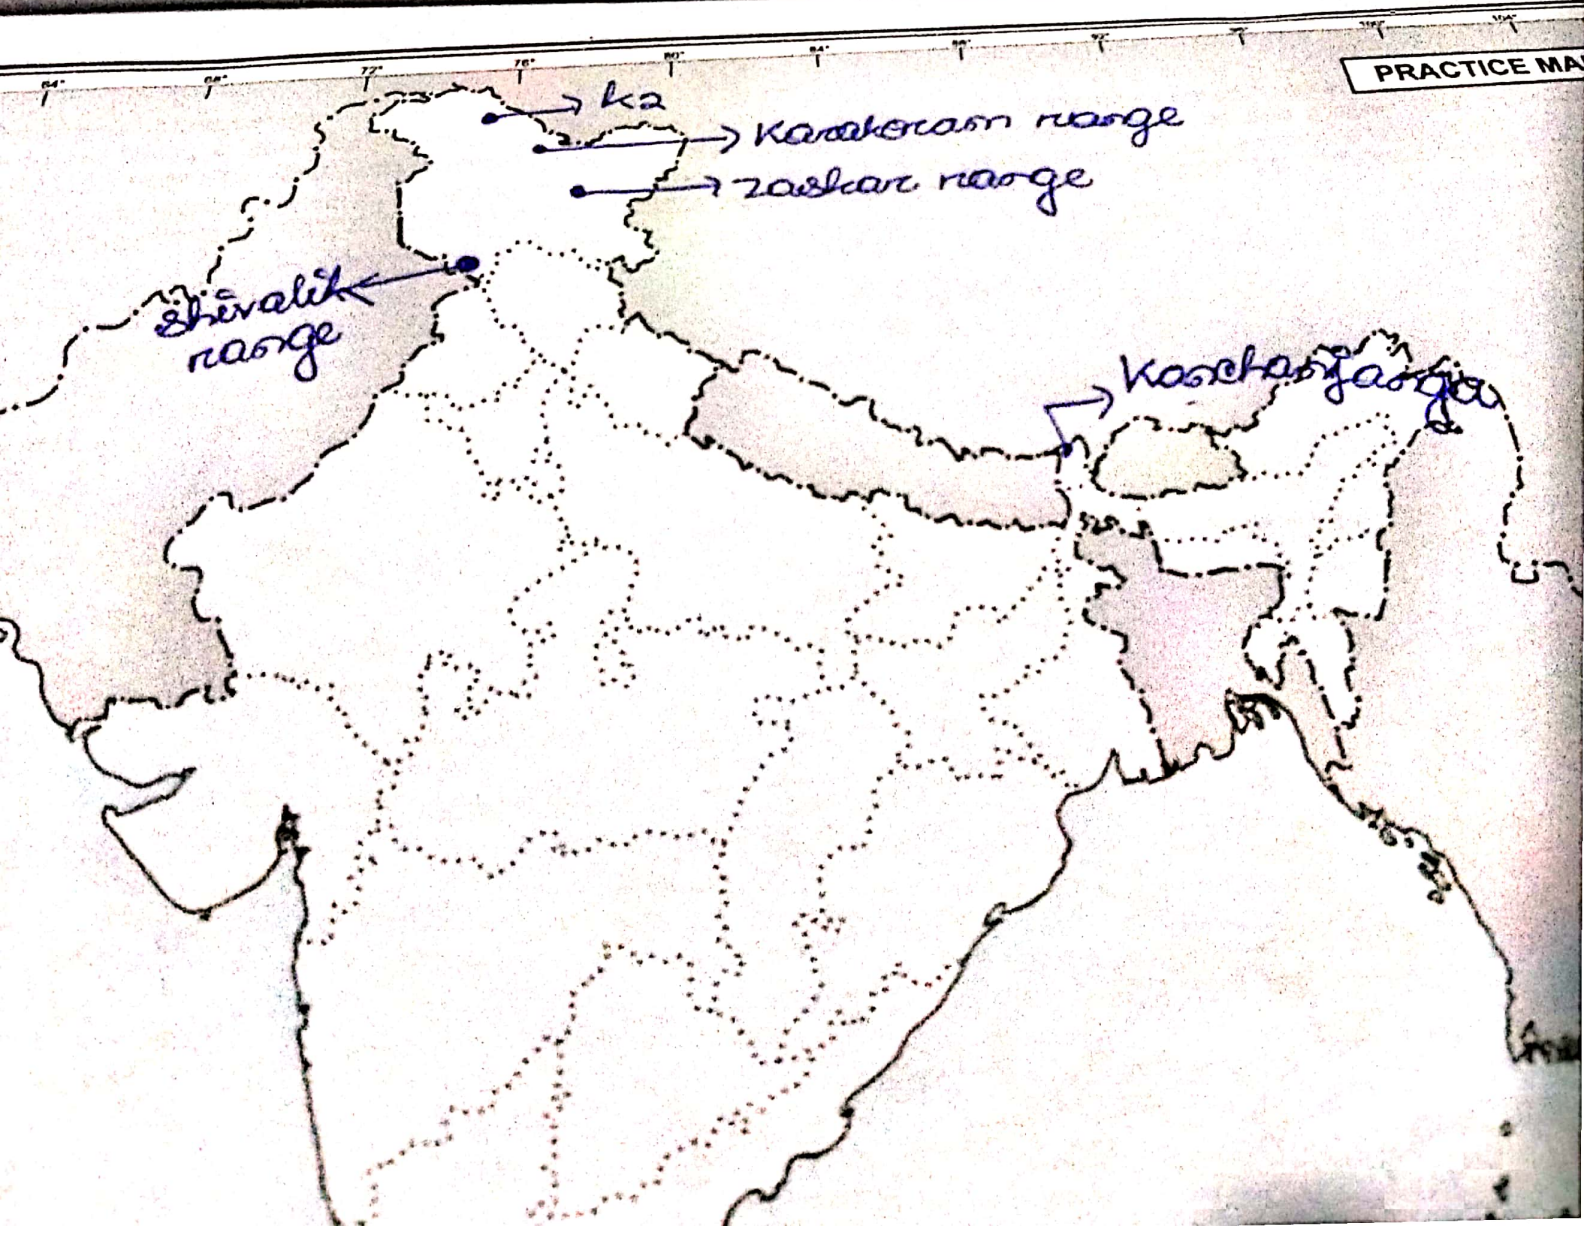 64° 68° 72° 76° 80° 84° 88° 92° 100° 104°
PRACTICE MA
K2
Karakoram range
zaskar range
Shivalik
range
Kanchanjanga